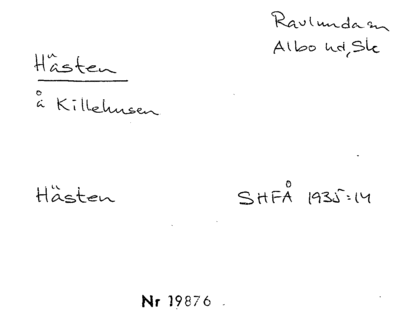 Ravlunda sn
Albo hd, Sk
Hästen
å Killehusen
Hästen SHFÅ 1935:14
Nr 19876